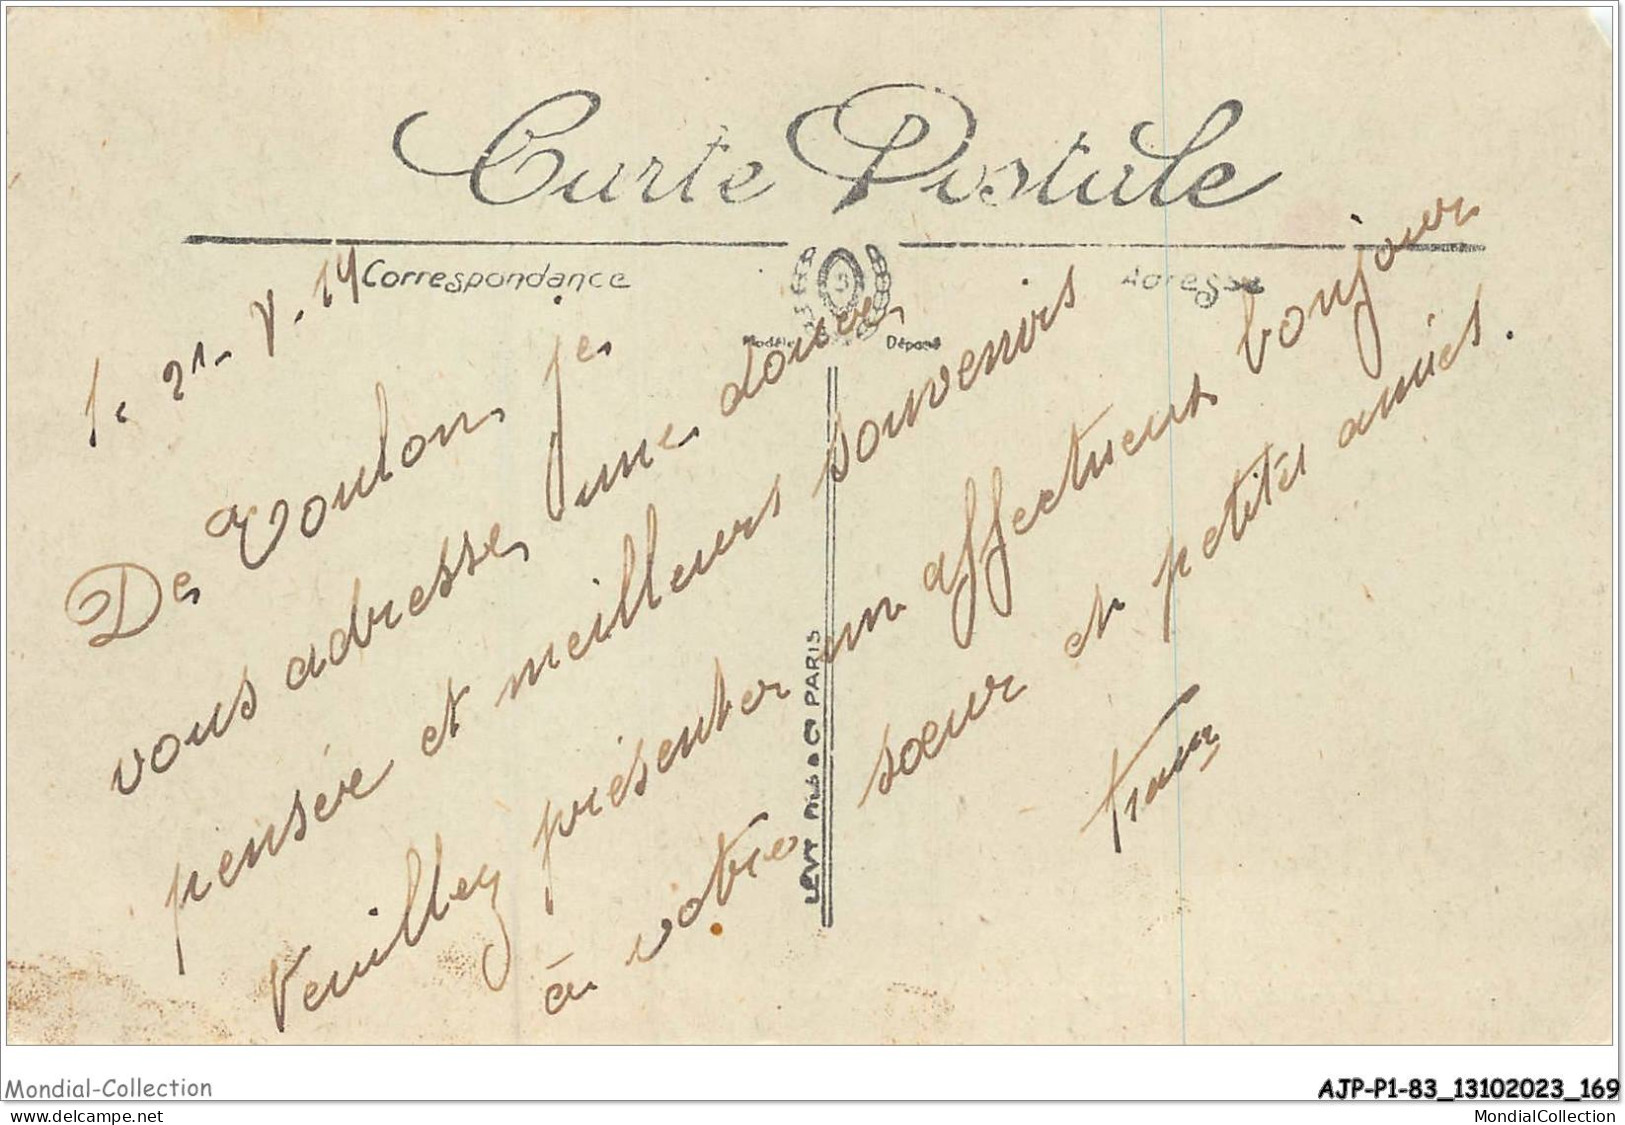 Carte Postale
Correspondance
Adresse
Modèle Déposé
LÉVY FILS & Cie PARIS
le 21-V-19
De Toulon je
vous adresse une douce
pensée et meilleurs souvenirs
Veuillez présenter un affectueux bonjour
à votre sœur et petites amies.
Mondial-Collection
AJP-P1-83_13102023_169
www.delcampe.net
MondialCollection